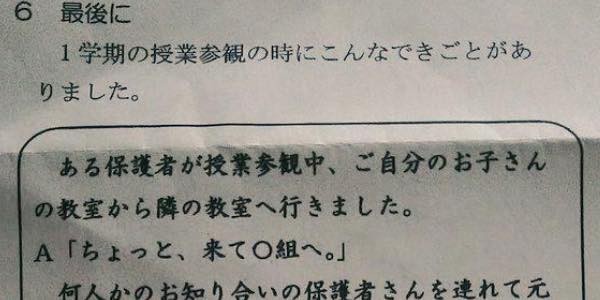 6　最後に
1学期の授業参観の時にこんなできごとがあ
りました。
ある保護者が授業参観中、ご自分のお子さん
の教室から隣の教室へ行きました。
A「ちょっと、来て〇組へ。」
何人かのお知り合いの保護者さんを連れて元